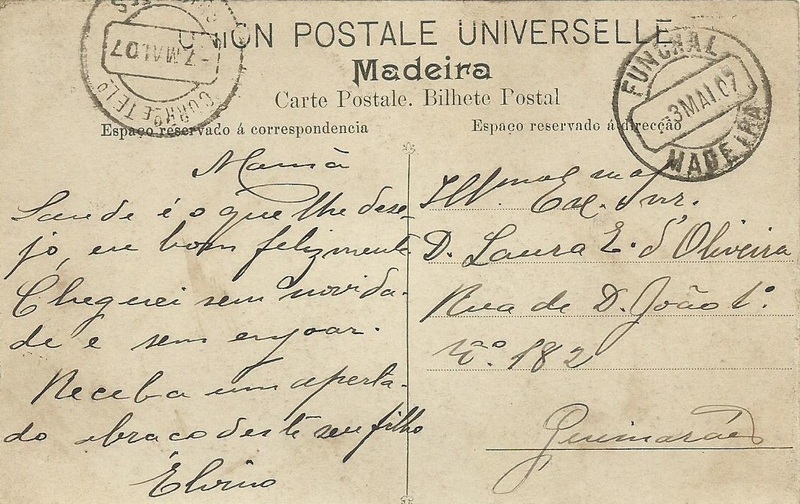 UNION POSTALE UNIVERSELLE
Madeira
Carte Postale. Bilhete Postal
Espaço reservado á correspondencia
Espaço reservado á direcção
CORRº E TELº
-7 MAI. 07
FUNCHAL
3 MAI. 07
MADEIRA
Mamã
Saude é o que lhe dese-
jo, eu bom felizmente
Cheguei sem novida-
de e sem enjoar.
Receba um aperta-
do abraço deste seu filho
Elvino
Illma
Exc. Snr.
D. Laura E. d'Oliveira
Rua de D. João 1º
Nº 182
Guimarães